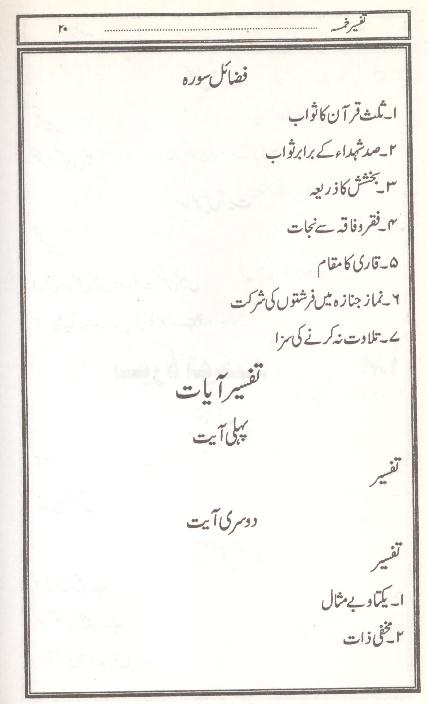 تفسیر خمسہ ........................................ ۲۰
فضائل سورہ
۱۔ ثلث قرآن کا ثواب
۲۔ صد شہداء کے برابر ثواب
۳۔ بخشش کا ذریعہ
۴۔ فقر و فاقہ سے نجات
۵۔ قاری کا مقام
۶۔ نماز جنازہ میں فرشتوں کی شرکت
۷۔ تلاوت نہ کرنے کی سزا
تفسیر آیات
پہلی آیت
تفسیر
دوسری آیت
تفسیر
۱۔ یکتا و بے مثال
۲۔ مخفی ذات